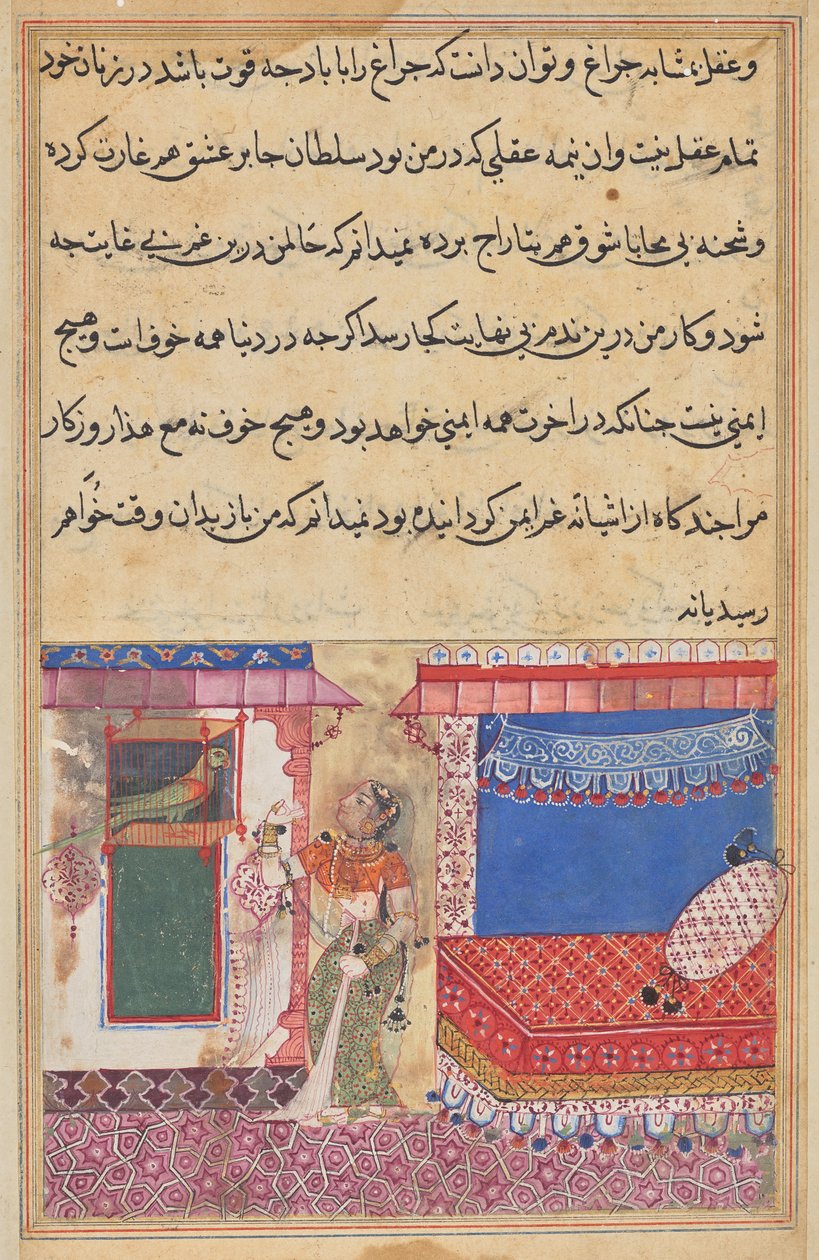 و عقل مشابه جراغ و توان دانست که جراغ را با باد جه قوت باشد در زنان خود
تمام عقل نیست و ان نیمه عقلی که در من بود سلطان جابر عشق هم غارت کرده
و شحنه بی محابا شوق هم بتاراج برده نمیدانم که حال من درین غم بی غایت جه
شود و کار من درین ندم بی نهایت کجا رسد اکر جه در دنیا همه خوف است و هیج
ایمنی نیست جنانکه در اخرت همه ایمنی خواهد بود و هیج خوف نه مع هذا روزکار
مرا جند کاه از اشیانه غم ایمن کردانیده بود نمیدانم که من باز بدان وقت خواهم
رسید یا نه